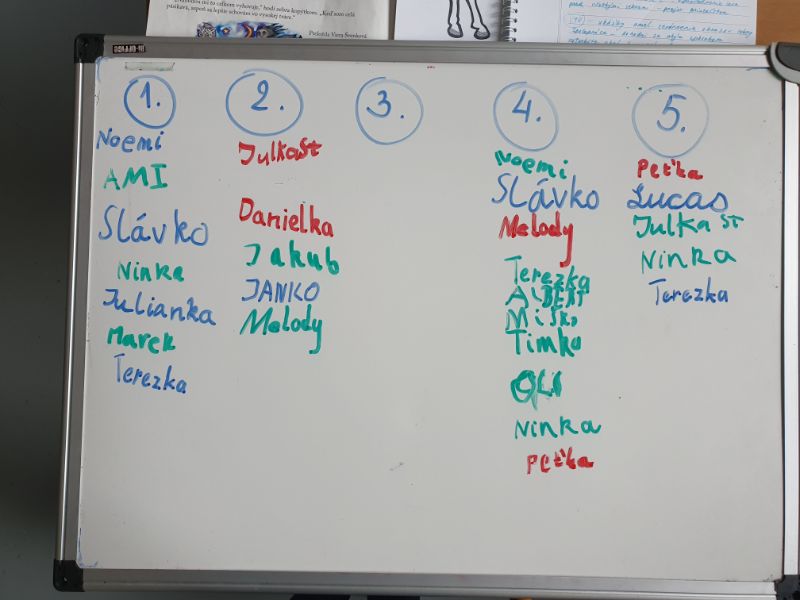 pásikavá, aspoň sa lepšie schovám vo vysokej tráve."
1.
Noemi
AMI
Slávko
Ninka
Julianka
Marek
Terezka
2.
Julka ST
Danielka
Jakub
JANKO
Melody
3.
4.
Noemi
Slávko
Melody
Terezka
ALBERT
Miško
Timko
OLI
Ninka
Peťka
5.
Peťka
Lucas
Julka ST
Ninka
Terezka